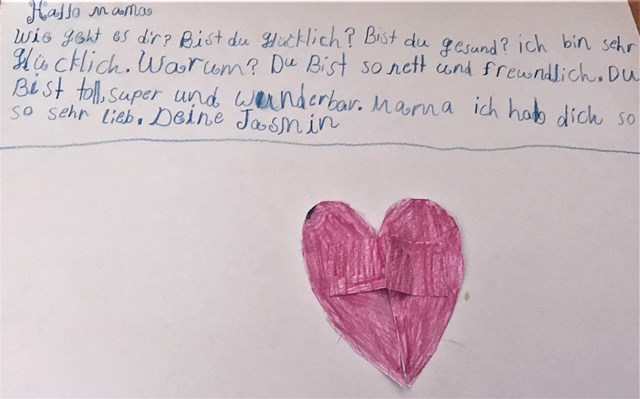 Hallo mama
Wie geht es dir? Bist du glücklich? Bist du gesund? ich bin sehr
Glücklich. Warum? Du Bist so nett und freundlich. Du
Bist toll, super und wunderbar. Mama ich hab dich so
so sehr lieb. Deine Jasmin